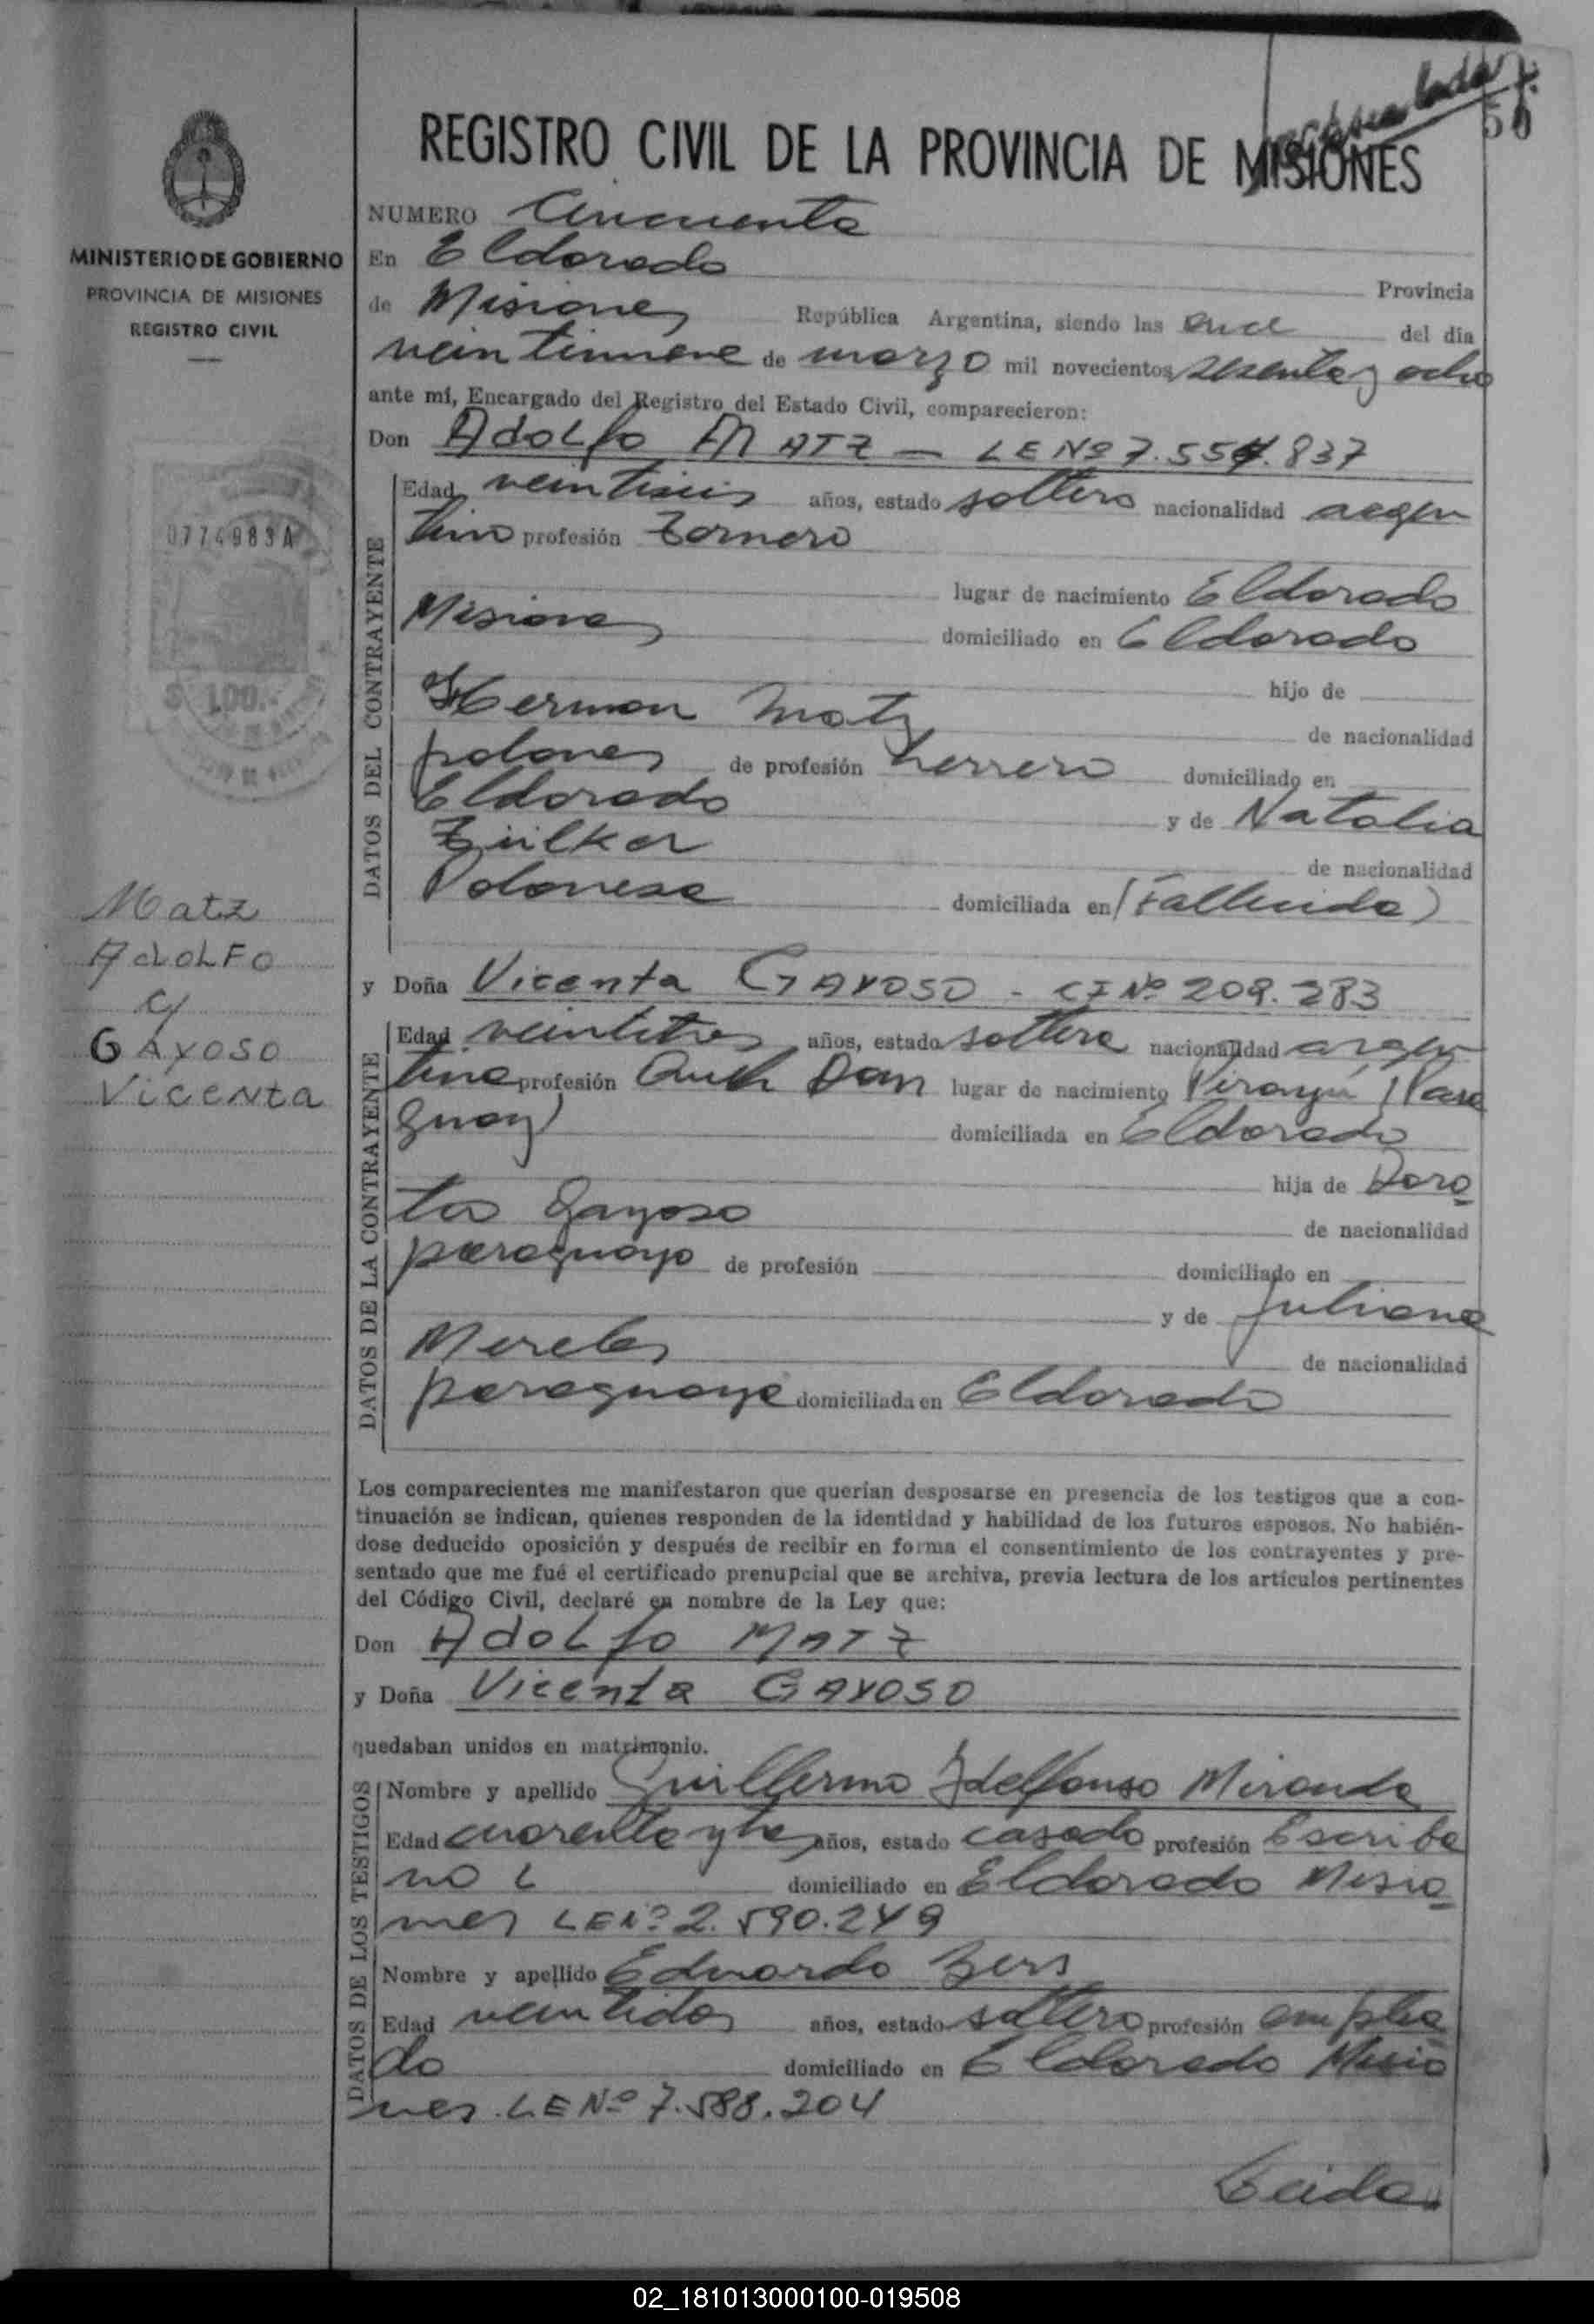 50
REGISTRO CIVIL DE LA PROVINCIA DE MISIONES
MINISTERIO DE GOBIERNO
PROVINCIA DE MISIONES
REGISTRO CIVIL
0774983A
$ 1,00.-
Matz
Adolfo
c/
GAYOSO
Vicenta
NUMERO Cincuenta
En Eldorado Provincia
de Misiones República Argentina, siendo las once del día
veintinueve de marzo mil novecientos sesenta y ocho
ante mí, Encargado del Registro del Estado Civil, comparecieron:
Don Adolfo MATZ – LE Nº 7.554.837
DATOS DEL CONTRAYENTE
Edad veintiseis años, estado soltero nacionalidad argen
tino profesión Tornero
lugar de nacimiento Eldorado
Misiones domiciliado en Eldorado
hijo de
Herman Matz de nacionalidad
polones de profesión herrero domiciliado en
Eldorado y de Natalia
Zülker de nacionalidad
Polonesa domiciliada en (Fallecida)
y Doña Vicenta GAYOSO - CI Nº 209.283
DATOS DE LA CONTRAYENTE
Edad veintitres años, estado soltera nacionalidad argen
tina profesión Queh Dom lugar de nacimiento Pirayú (Para
guay) domiciliada en Eldorado
hija de Doro
teo Gayoso de nacionalidad
paraguayo de profesión domiciliado en
y de Juliana
Mereles de nacionalidad
paraguaya domiciliada en Eldorado
Los comparecientes me manifestaron que querían desposarse en presencia de los testigos que a con-
tinuación se indican, quienes responden de la identidad y habilidad de los futuros esposos. No habién-
dose deducido oposición y después de recibir en forma el consentimiento de los contrayentes y pre-
sentado que me fué el certificado prenupcial que se archiva, previa lectura de los artículos pertinentes
del Código Civil, declaré en nombre de la Ley que:
Don Adolfo MATZ
y Doña Vicenta GAYOSO
quedaban unidos en matrimonio.
DATOS DE LOS TESTIGOS
Nombre y apellido Guillermo Idelfonso Miranda
Edad cuarenta y tres años, estado casado profesión Escriba
no domiciliado en Eldorado Misio
nes LE Nº 2.590.249
Nombre y apellido Eduardo
Edad veintidos años, estado soltero profesión emplea
do domiciliado en Eldorado Misio
nes. LE Nº 7.588.204
Leida
02_181013000100-019508